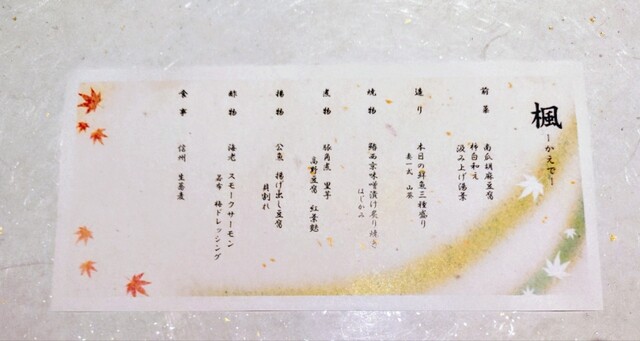 楓
～かえで～
前菜
南瓜胡麻豆腐
柿白和え
汲み上げ湯葉
造り
本日の鮮魚三種盛り
妻一式 山葵
焼物
西京味噌漬け炙り焼き
はじかみ
煮物
豚角煮 里芋
高野豆腐 紅葉麩
揚物
公魚 揚げ出し豆腐
貝割れ
酢物
海老 スモークサーモン
若布 梅ドレッシング
食事
信州 生蕎麦